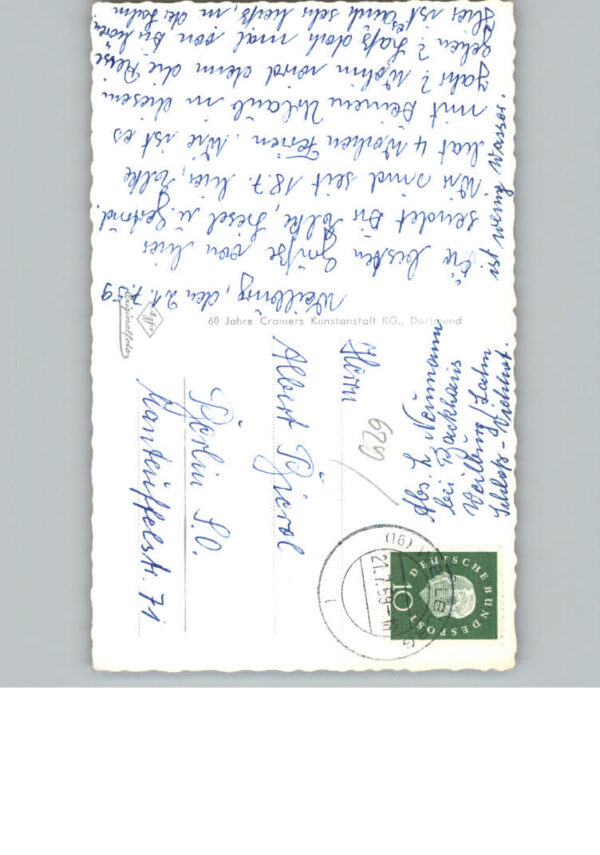 Weilburg, den 21.7.59
Die besten Grüße von hier
sendet Dir Tolke, Liesel u. Gertrud.
Wir sind seit 18.7. hier, Tolke
hat 4 Wochen Ferien. Wie ist es
mit Deinem Urlaub in diesem
Jahr? Wohin wird denn die Reise
gehen? Laß doch mal von Dir hören
Hier ist es auch sehr heiß, in der Lahn
ist wenig Wasser.
Agfa
Originalfoto
60 Jahre Cramers Kunstanstalt KG., Dortmund
Abs. L. Neumann
bei Backhaus
Weilburg/Lahn
Schloß-
629
Herrn
Albert
Berlin S.O.
Manteuffelstr. 71
DEUTSCHE BUNDESPOST
10
(16) WEILBURG
21.7.59